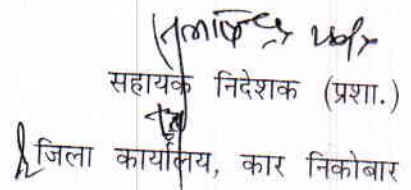 सहायक निदेशक (प्रशा.)
जिला कार्यालय, कार निकोबार